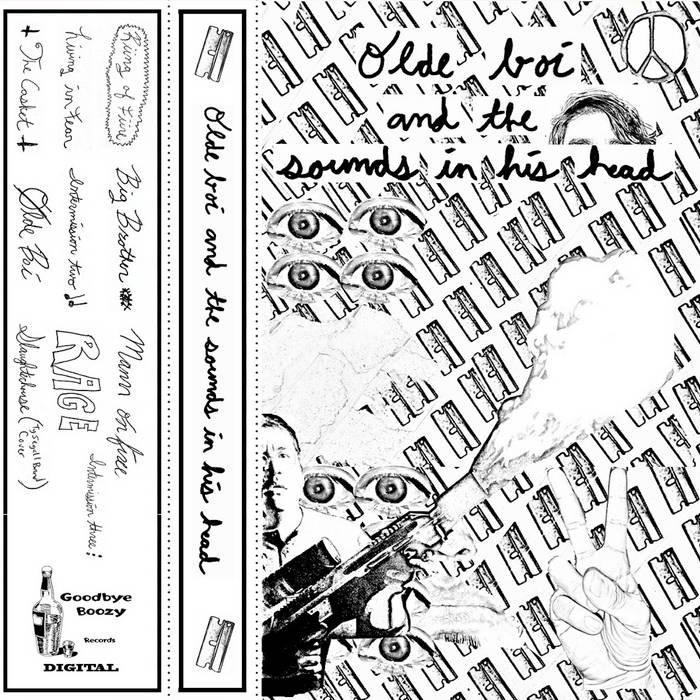 Olde boi
and the
sounds in his head
Olde boi and the sounds in his head
Ring of Fire
Big Brother
Mann on fire
Intermission three:
Living in Fear
Intermission two
RAGE
+ The Casket +
Olde Boi
Slaughterhouse (Ty Segall Band
Cover)
Goodbye
Boozy
Records
DIGITAL